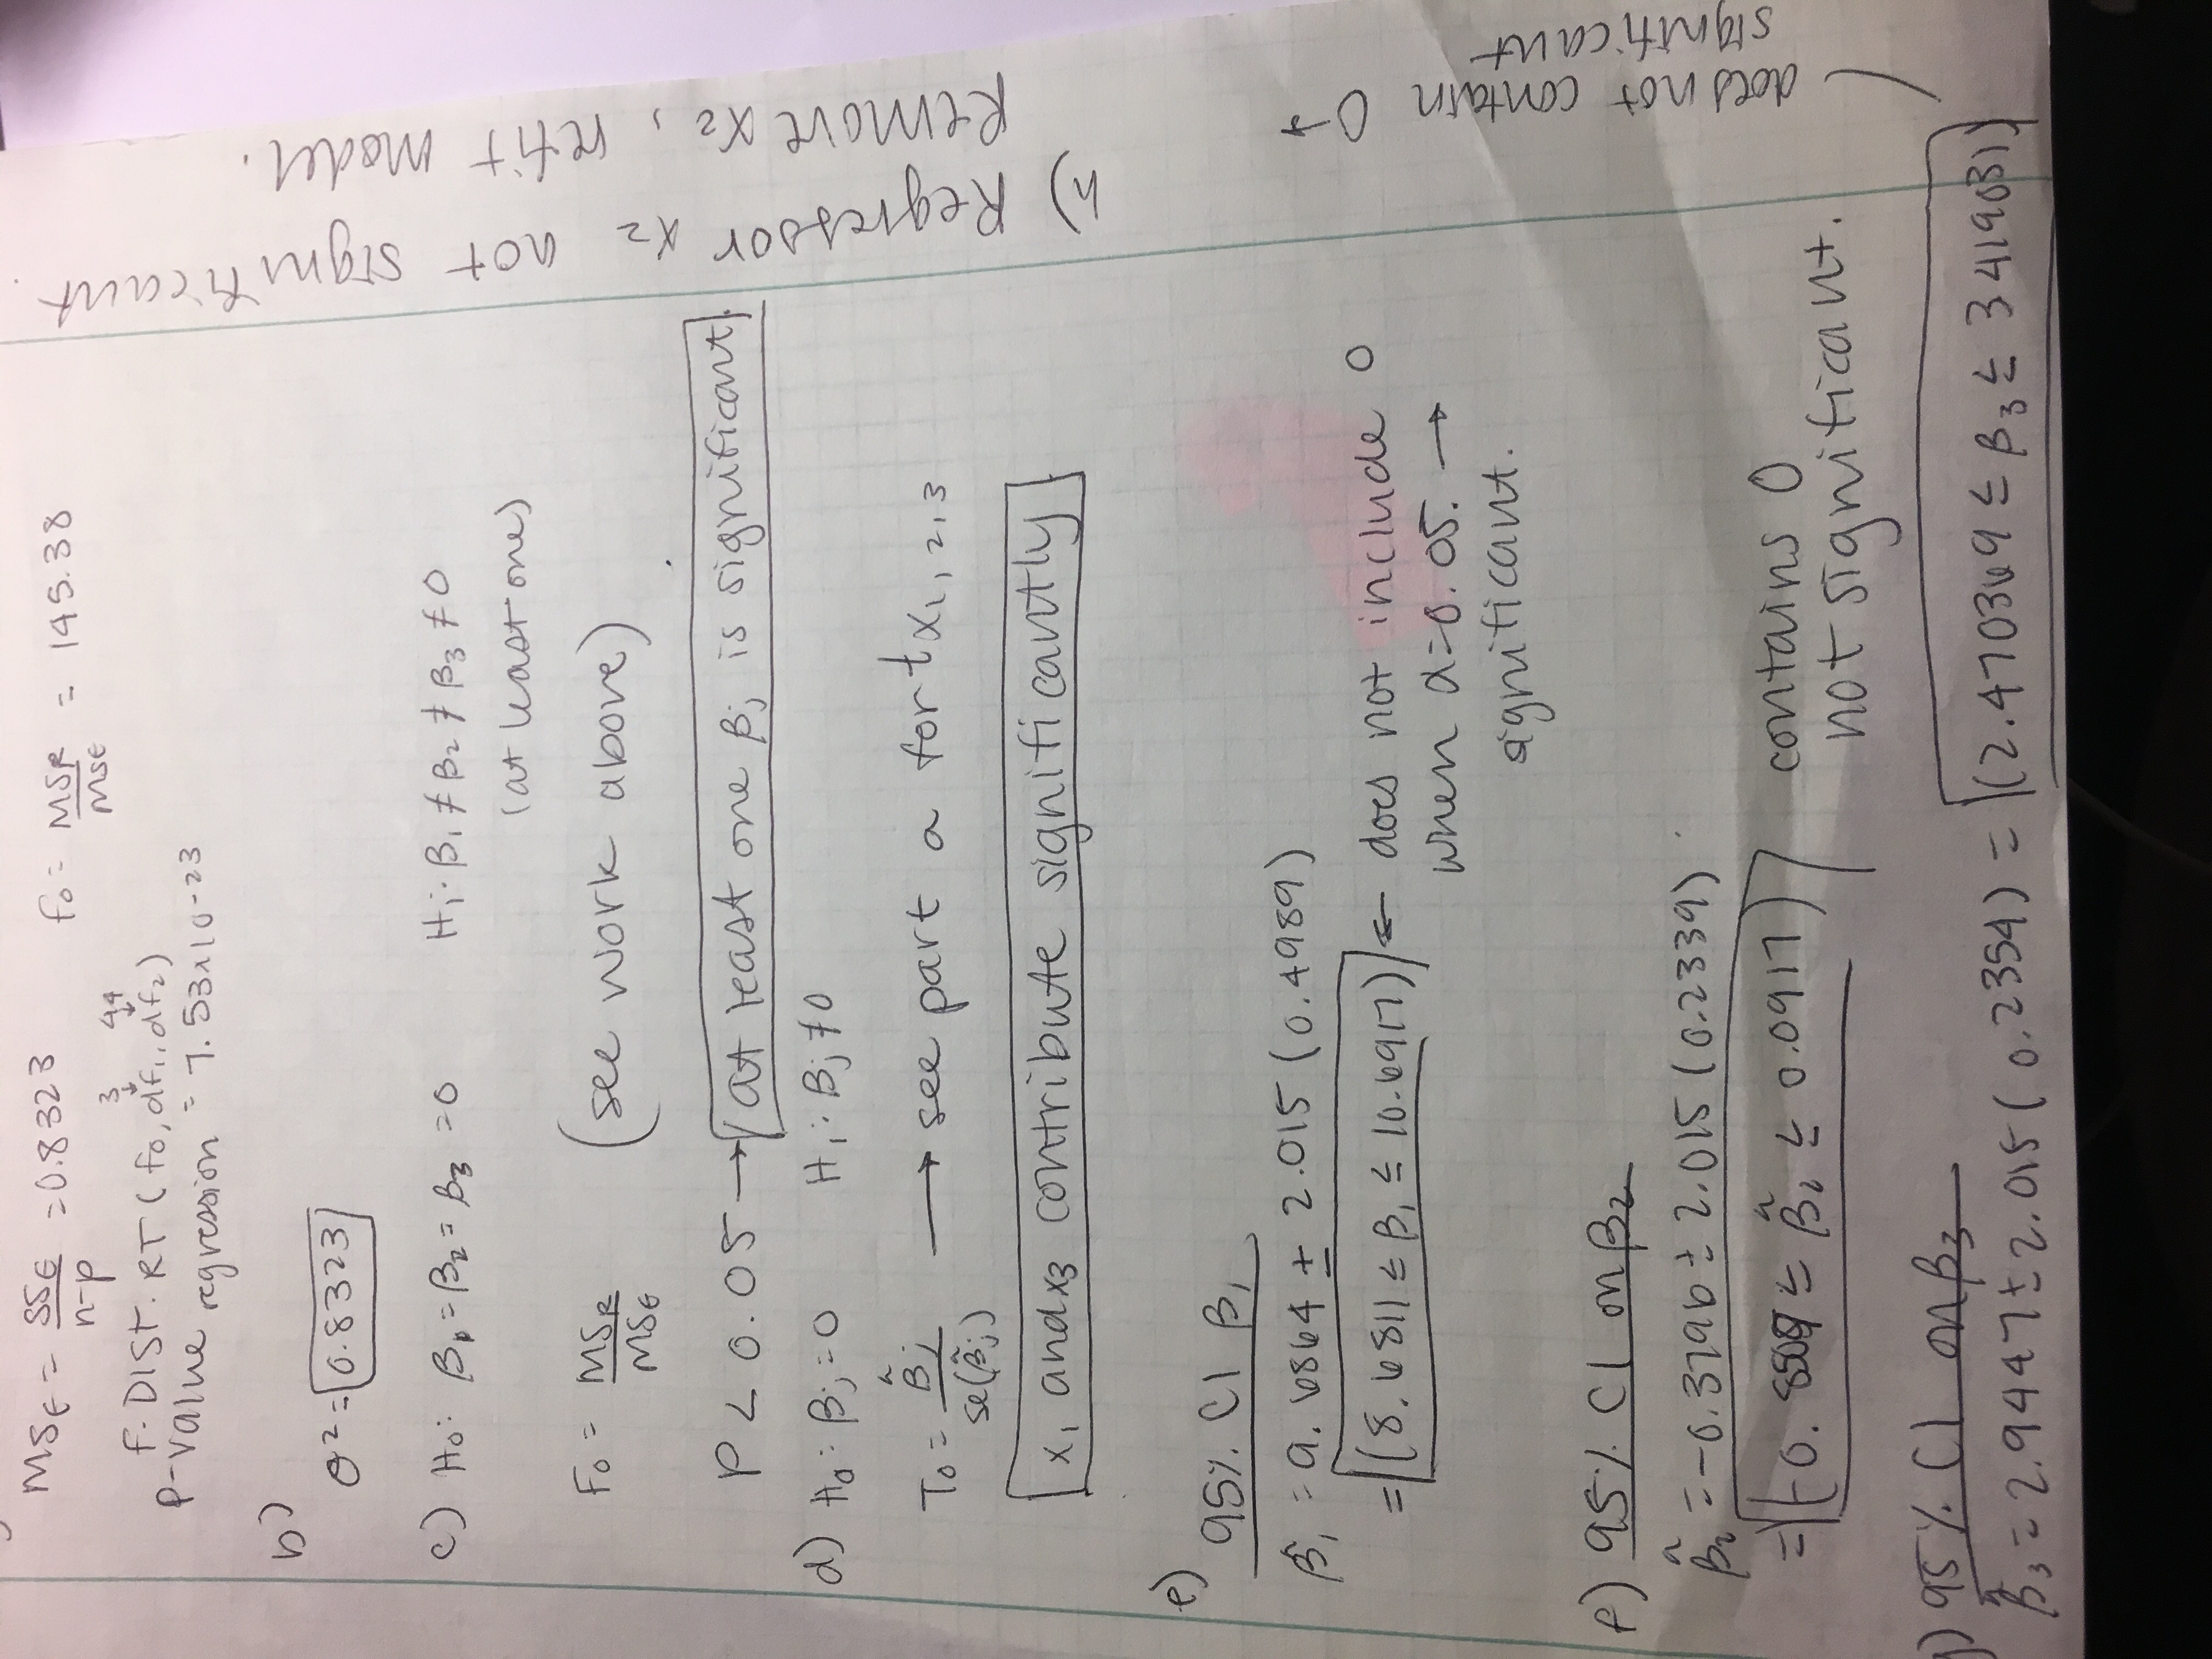 MS_E = SS_E / n-p = 0.8323    f₀ = MS_R / MS_E = 145.38
3 ↓ 44 ↓
F.DIST.RT (f₀, df₁, df₂)
P-value regression = 7.53x10-23
b)
σ² = 0.8323
c) H₀: β₁ = β₂ = β₃ = 0    H₁: β₁ ≠ β₂ ≠ β₃ ≠ 0
(at least one)
F₀ = MS_R / MS_E    (see work above)
P < 0.05 → at least one βj is significant.
d) H₀: βj = 0    H₁: βj ≠ 0
T₀ = β̂j / se(β̂j) → see part a for t x₁,₂,₃
x₁ and x₃ contribute significantly.
e)
95% CI β₁
β̂₁ = 9.6864 ± 2.015 (0.4989)
= (8.6811 ≤ β₁ ≤ 10.6917) ← does not include 0
when α=0.05. →
significant.
f) 95% CI on β₂
β̂₂ = -0.3796 ± 2.015 (0.2339)
= (-0.8509 ≤ β̂₂ ≤ 0.0917)    contains 0
not significant.
g) 95% CI on β₃
β̂₃ = 2.9447 ± 2.015 (0.2354) = (2.470369 ≤ β₃ ≤ 3.419031)
does not contain 0 →
significant
h) Regressor x₂ not significant.
Remove x₂, refit model.